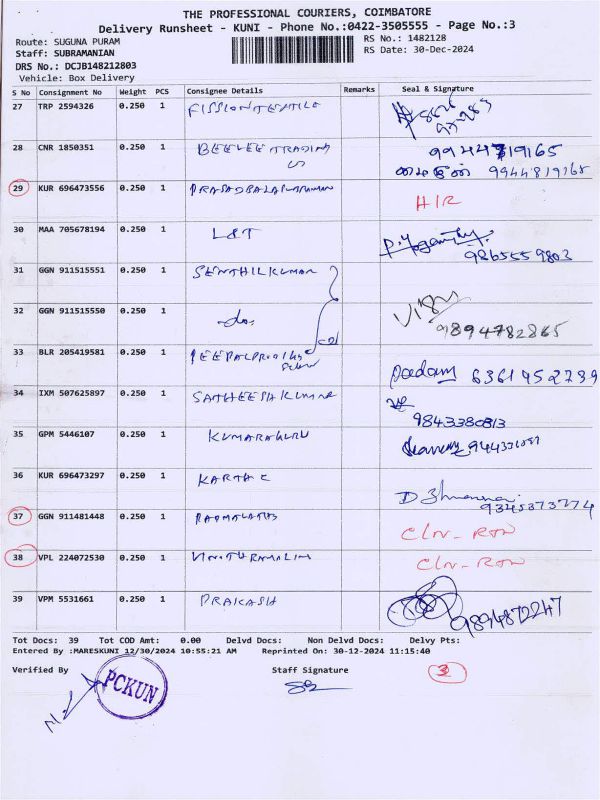 THE PROFESSIONAL COURIERS, COIMBATORE
Delivery Runsheet - KUNI - Phone No.:0422-3505555 - Page No.:3
Route: SUGUNA PURAM
Staff: SUBRAMANIAN
DRS No.: DCJB148212803
Vehicle: Box Delivery
RS No.: 1482128
RS Date: 30-Dec-2024
S No Consignment No Weight PCS Consignee Details Remarks Seal & Signature
27 TRP 2594326 0.250 1 FISSION TEXTILE
28 CNR 1850351 0.250 1 BEELEE TRADING 9944719165
9944819165
29 KUR 696473556 0.250 1 H/R
30 MAA 705678194 0.250 1 L&T 9865559803
31 GGN 911515551 0.250 1 SENTHILKUMAR
32 GGN 911515550 0.250 1 -do- 9894782865
33 BLR 205419581 0.250 1 Padam 6361952739
34 IXM 507625897 0.250 1 SATHEESH KUMAR 9843380813
35 GPM 5446107 0.250 1 KUMARAGURU
36 KUR 696473297 0.250 1 KARTHIC 9345373774
37 GGN 911481448 0.250 1
38 VPL 224072530 0.250 1
39 VPM 5531661 0.250 1 PRAKASH 9894872247
Tot Docs: 39 Tot COD Amt: 0.00 Delvd Docs: Non Delvd Docs: Delvy Pts:
Entered By :MARESKUNI 12/30/2024 10:55:21 AM Reprinted On: 30-12-2024 11:15:40
Verified By Staff Signature 3
PCKUN